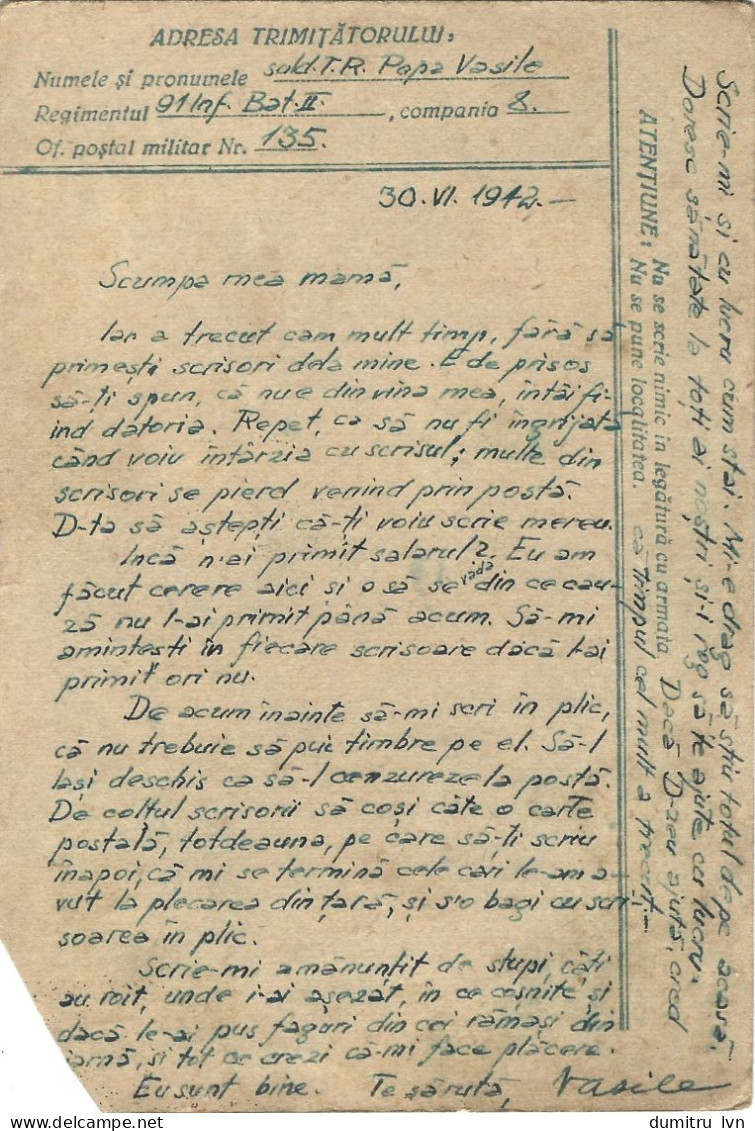 ADRESA TRIMIȚĂTORULUI:
Numele și pronumele sold.T.R. Popa Vasile
Regimentul 91 Inf. Bat. II. , compania 8.
Of. poștal militar Nr. 135.
30.VI.1942.-
Scumpa mea mamă,
Iar a trecut cam mult timp, fără să
primești scrisori dela mine. E de prisos
să-ți spun, că nu e din vina mea, întâi fi-
ind datoria. Repet, ca să nu fi îngrijată
când voiu întârzia cu scrisul; multe din
scrisori se pierd venind prin poștă.
D-ta să aștepți că-ți voiu scrie mereu.
Incă n-ai primit salarul? Eu am
făcut cerere aici si o să se vadă din ce cau-
ză nu l-ai primit până acum. Să-mi
amintești în fiecare scrisoare dacă l-ai
primit ori nu.
De acum înainte să-mi scri în plic,
că nu trebuie să pui timbre pe el. Să-l
lași deschis ca să-l cenzureze la poștă.
De colțul scrisorii să coși câte o carte
postală, totdeauna, pe care să-ți scriu
înapoi, că mi se termină cele cari le-am a-
vut la plecarea din țară, și s'o bagi cu scri-
soarea în plic.
Scrie-mi amănunțit de stupi, câți
au roit, unde i-ai așezat, în ce coșnițe și
dacă le-ai pus faguri din cei rămași din
iarnă, si tot ce crezi că-mi face plăcere.
Eu sunt bine. Te sărută, Vasile
ATENȚIUNE: Nu se scrie nimic în legătură cu armata.
Nu se pune localitatea.
Scrie-mi si cu lucru cum stai. Mi-e drag să știu totul de pe acasă.
Doresc sănătate la toți ai noștri și-i rog să te ajute cu lucru.
Dacă D-zeu ajută, cred
că timpul cel mult a trecut.-
dumitru lvn